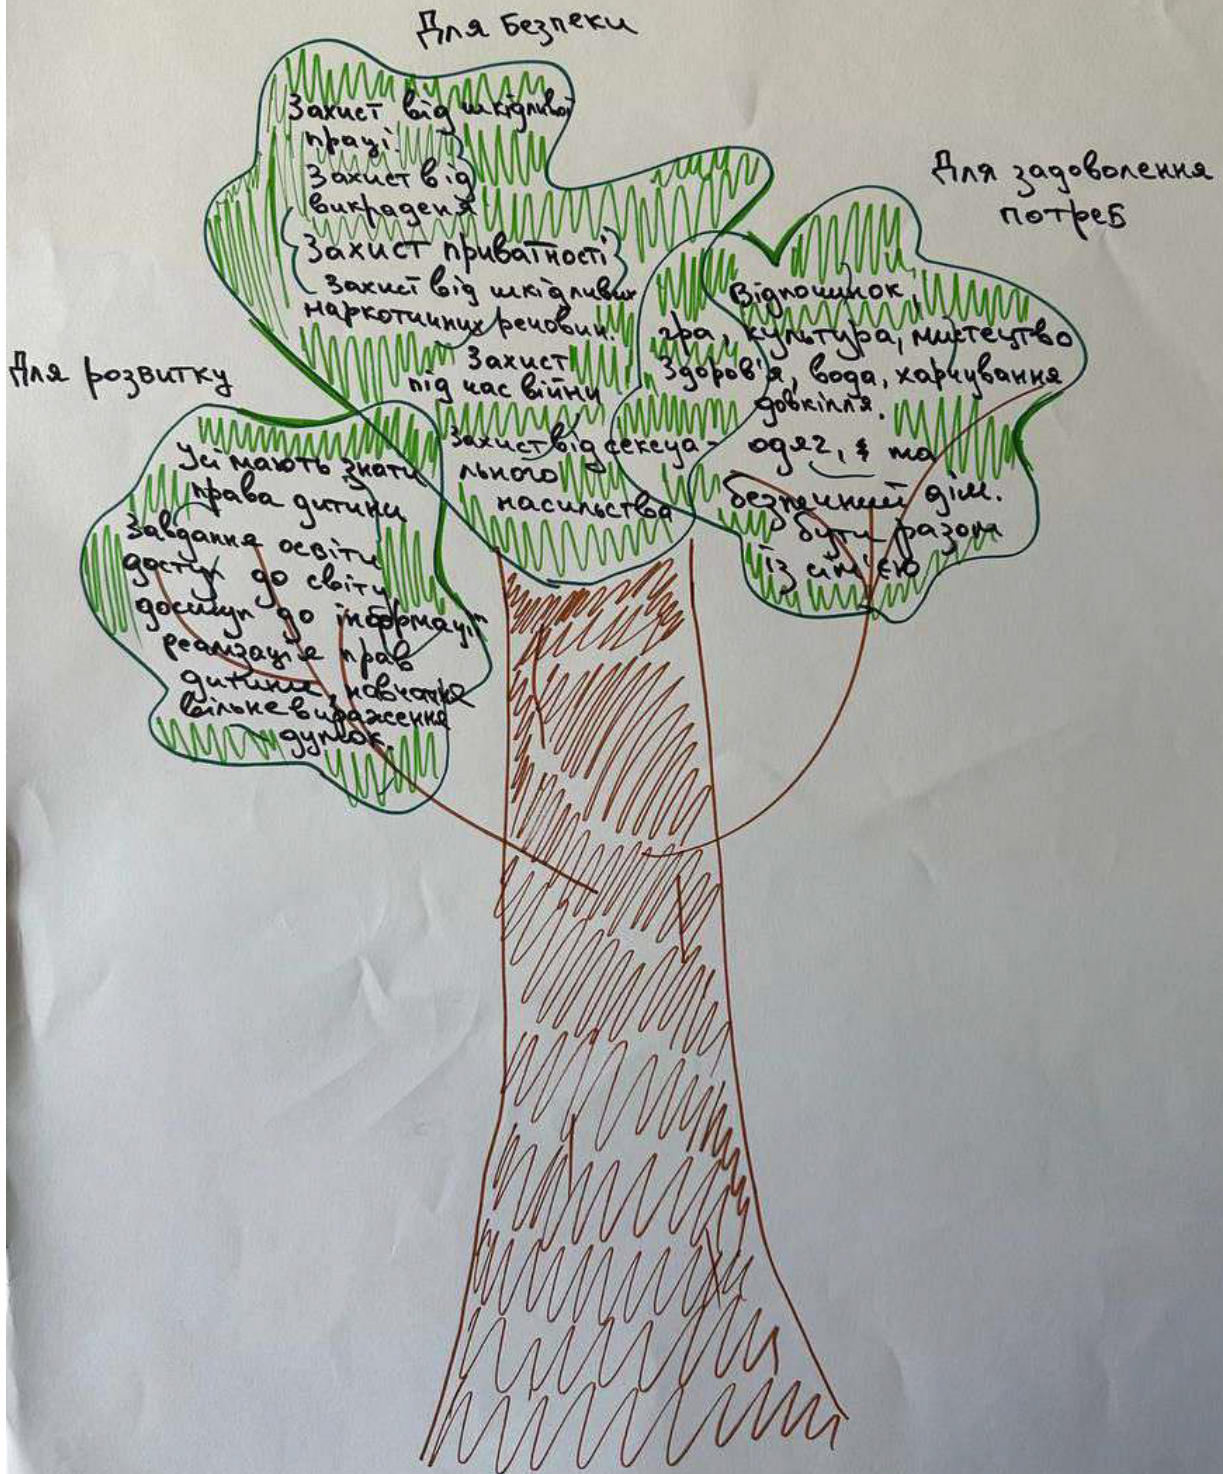 Для Безпеки
Захист від шкідливої
праці.
Захист від
викраденя
Захист приватності
Захист від шкідливих
наркотичних речовин.
Захист
під час війни
Захист від сексуа-
льного
насильства
Для задоволення
потреб
Відпочинок,
гра, культура, мистецтво
Здоров'я, вода, харчування
довкілля.
одяг, та
безпечний дім.
бути разом
із сім'єю
Для розвитку
Усі мають знати
права дитини
Завдання освіти
доступ до світу
доступ до інформації
реалізація прав
дитини, навчання
вільне вираження
думок.